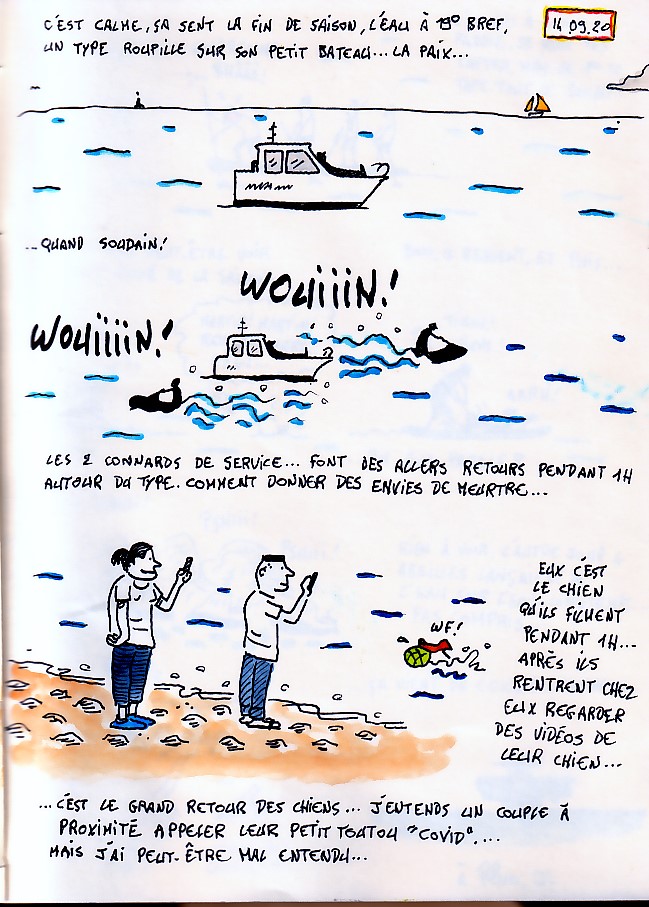 C'EST CALME, ÇA SENT LA FIN DE SAISON, L'EAU À 19° BREF,
14.09.20
UN TYPE ROUPILLE SUR SON PETIT BATEAU... LA PAIX...
... QUAND SOUDAIN!
WOUIIIN!
WOUIIIIN!
LES 2 CONNARDS DE SERVICE... FONT DES ALLERS RETOURS PENDANT 1H
AUTOUR DU TYPE. COMMENT DONNER DES ENVIES DE MEURTRE...
EUX C'EST
LE CHIEN
QU'ILS FILMENT
PENDANT 1H...
APRÈS ILS
RENTRENT CHEZ
EUX REGARDER
DES VIDÉOS DE
LEUR CHIEN...
WF!
... C'EST LE GRAND RETOUR DES CHIENS... J'ENTENDS UN COUPLE À
PROXIMITÉ APPELER LEUR PETIT TOUTOU "COVID"....
MAIS J'AI PEUT-ÊTRE MAL ENTENDU...